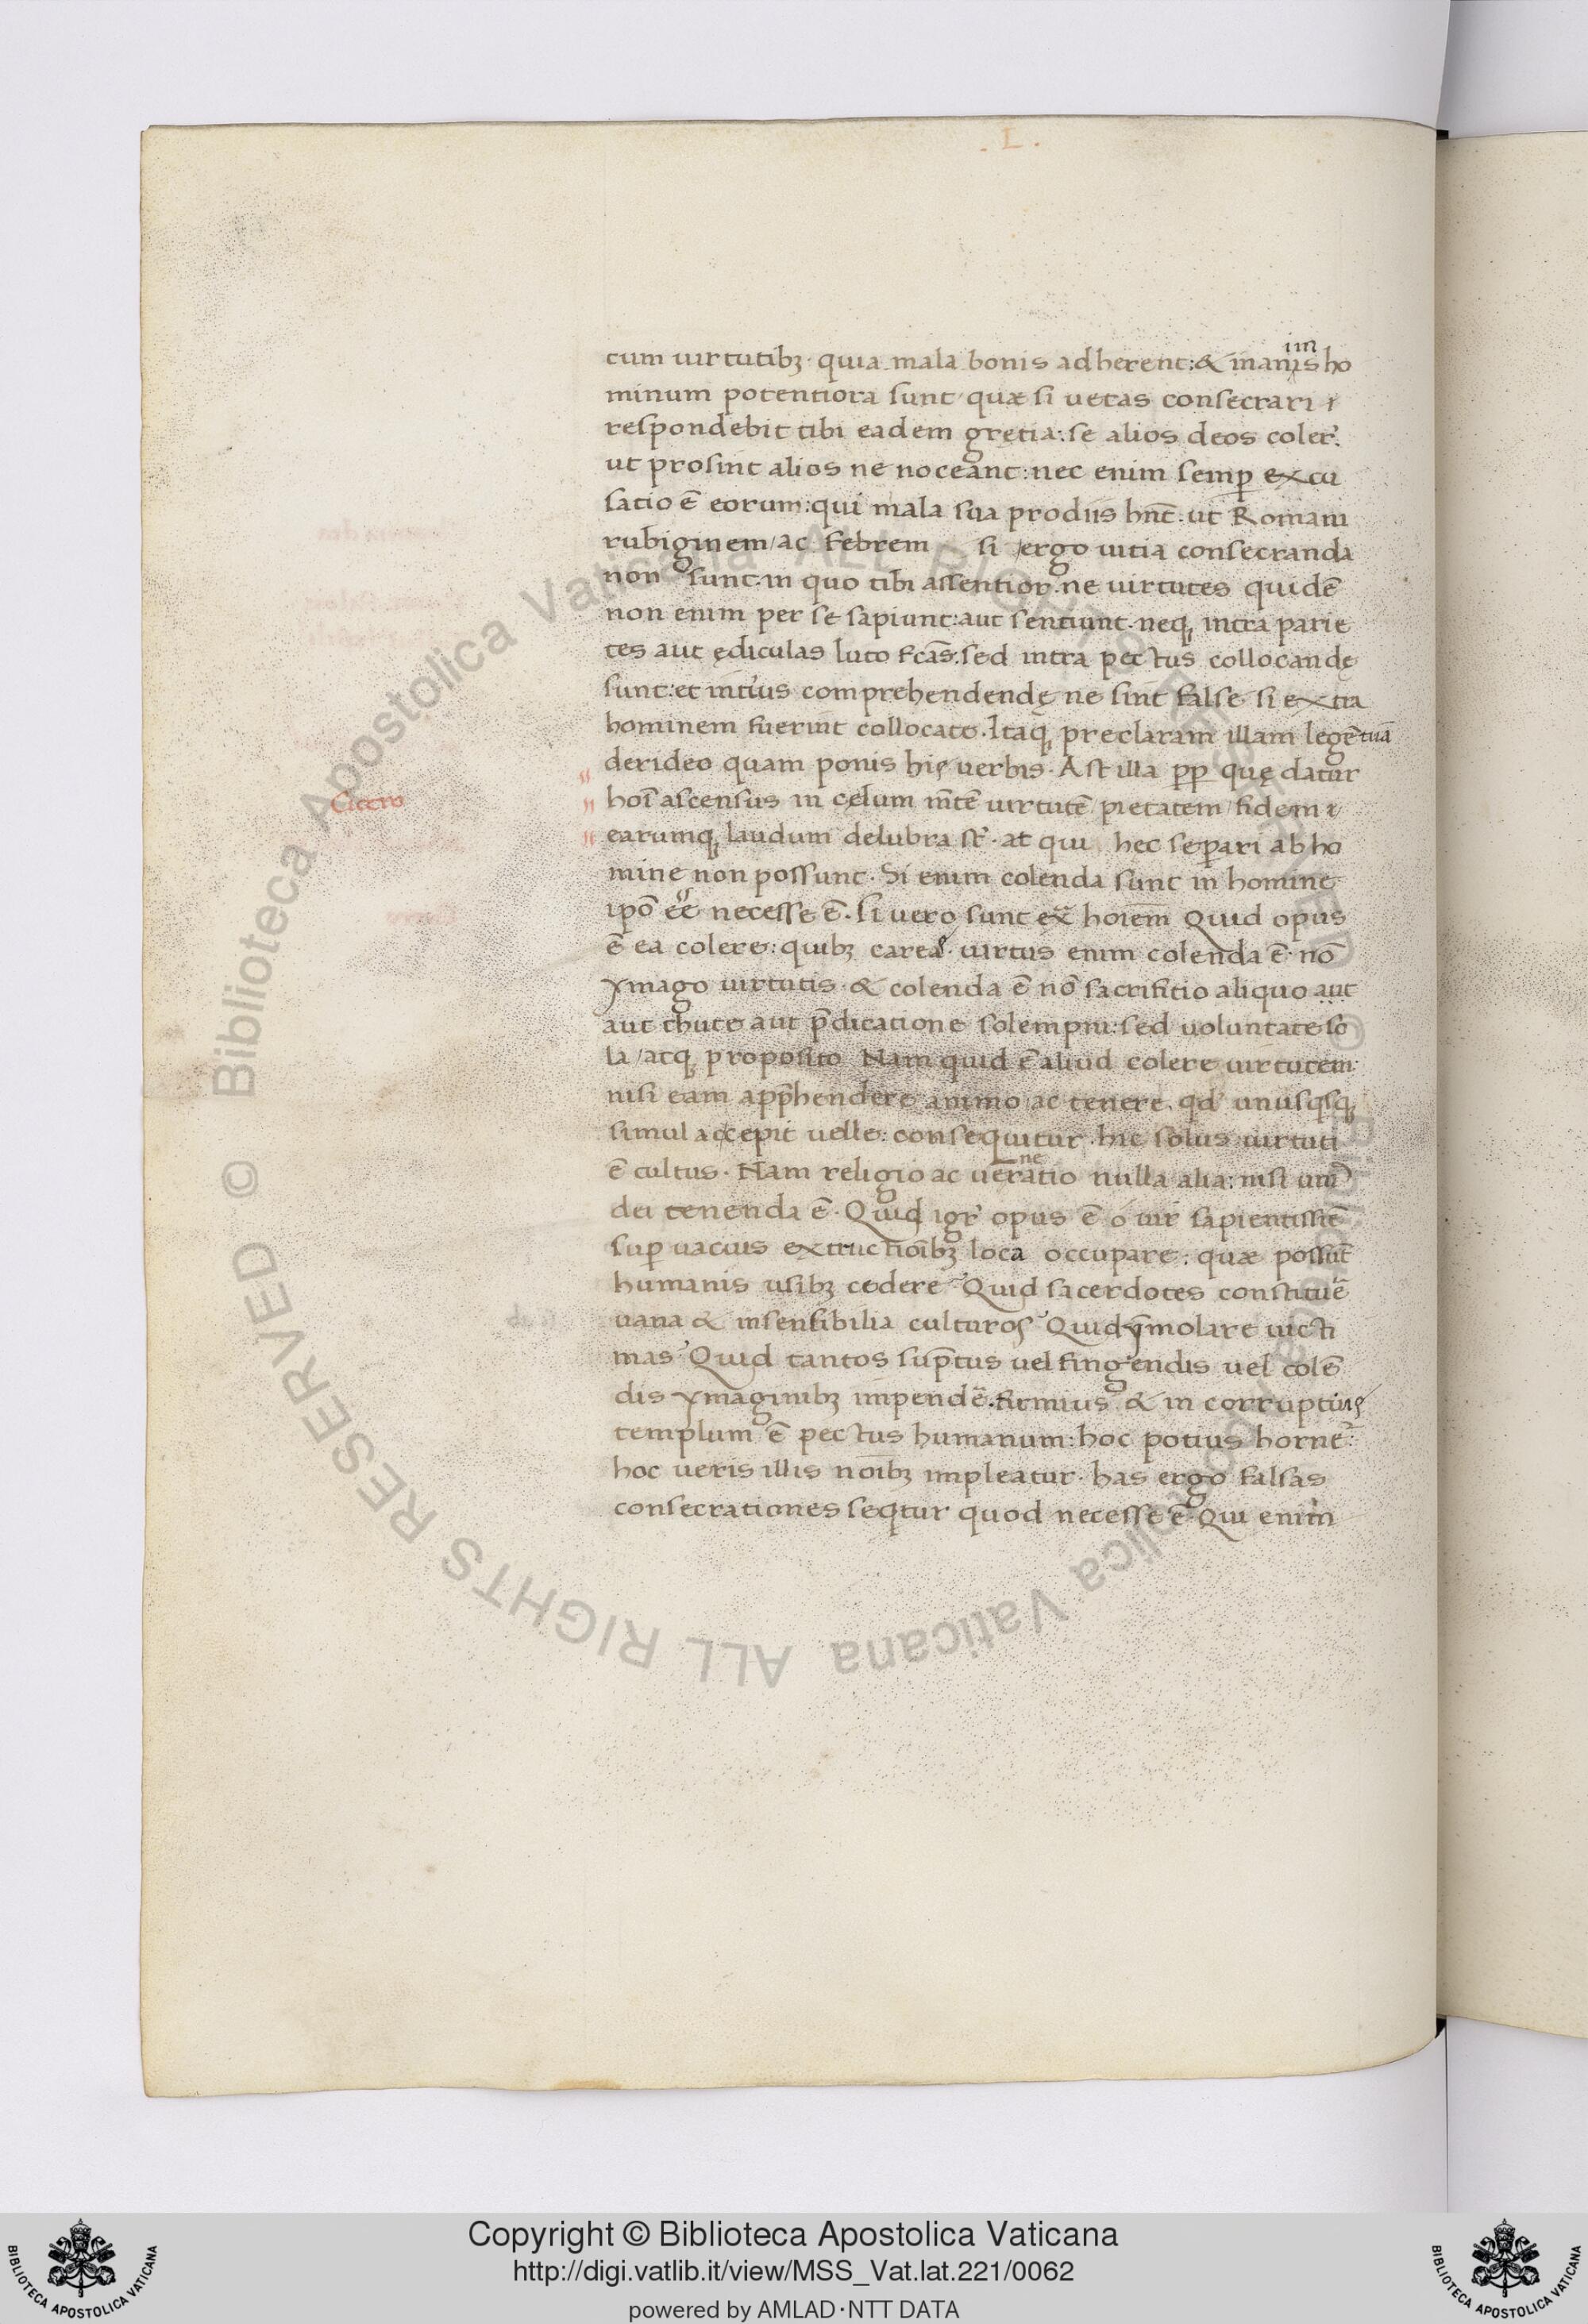 . L .
cum uirtutibꝫ · quia mala bonis adherent: & in animis ho
minum potentiora sunt / quæ si uetas consecrari /
respondebit tibi eadem gretia: se alios deos coler̃.
ut prosint alios ne noceant: nec enim semꝑ excu
satio ẽ eorum: qui mala sua prodiis hñt. ut Romani
rubiginem / ac febrem si / ergo uitia consecranda
non sunt: in quo tibi assentior. ne uirtutes quidẽ
non enim per se sapiunt: aut sentiunt. neqꝫ intra parie
tes aut ędiculas luto fcãs: sed intra pectus collocandę
sunt: et inti̓us comprehendendę ne sint false si extra
hominem fuerint collocate. Itaqꝫ preclaram illam legẽ tuã
derideo quam ponis his uerbis. Ast illa ꝓp̃ quę datur
Cicero
hoĩ ascensus in cęlum m̃tẽ uirtutẽ / pietatem / fidem /
earumqꝫ laudum delubra st̃. at qui hec separi ab ho
mine non possunt. Si enim colenda sunt in homine
ip̃o eẽ necesse ẽ. si uero sunt ex̃ hoiem̃ Quid opus
ẽ ea colere: quibꝫ careas uirtus enim colenda ẽ. nõ
ymago uirtutis. & colenda ẽ nõ sacrifitio aliquo aut
aut thure aut p̃dicatione solempni: sed uoluntate so
la / atqꝫ proposito Nam quid ẽ aliud colere uirtutem:
nisi eam app̃hendere animo ac tenere. qd̓ unusqsqꝫ
simul accepit uelle: consequitur. hic solus uirtuti
ẽ cultus. Nam religio ac ueneratio nulla alia: nisi uniͥ
dei tenenda ẽ. Quid igr̃ opus ẽ o uir sapientissiẽ
suꝑ uacuis extructioĩbꝫ loca occupare: quæ possũt
humanis usibꝫ cedere Quid sacerdotes constituẽ
uana & insensibilia culturos Quid ymolare uicti
mas Quid tantos sup̃tus uel fingendis uel colẽ
dis ymaginibꝫ impendẽ. firmius & in corruptius
templum ẽ pectus humanum: hoc potius hornẽ:
hoc ueris illis noĩbꝫ impleatur. has ergo falsas
consecrationes seqtur quod necesse ẽ Qui enim
Copyright © Biblioteca Apostolica Vaticana
http://digi.vatlib.it/view/MSS_Vat.lat.221/0062
powered by AMLAD·NTT DATA
BIBLIOTECA APOSTOLICA VATICANA
BIBLIOTECA APOSTOLICA VATICANA
© Biblioteca Apostolica Vaticana ALL RIGHTS RESERVED © Biblioteca Apostolica Vaticana ALL RIGHTS RESERVED